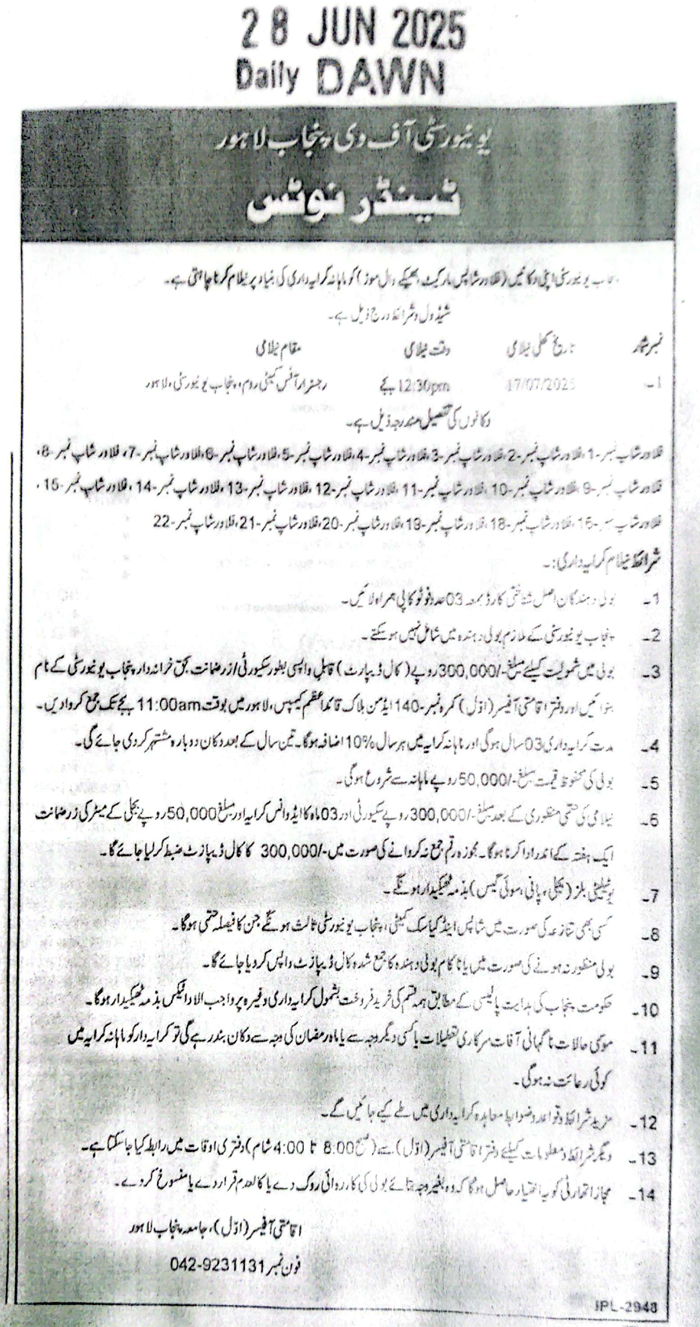 28 JUN 2025
Daily DAWN
یونیورسٹی آف دی پنجاب لاہور
ٹینڈر نوٹس
پنجاب یونیورسٹی اپنی دکانیں (فلاور شاپس مارکیٹ بھیکے وال موڑ) کو ماہانہ کرایہ داری کی بنیاد پر نیلام کرنا چاہتی ہے۔
شیڈول و شرائط درج ذیل ہے۔
نمبر شمار تاریخ کھلی نیلامی وقت نیلامی مقام نیلامی
1۔ 17/07/2025 12:30pm بجے رجسٹرار آفس کمیٹی روم، پنجاب یونیورسٹی، لاہور
دکانوں کی تفصیل مندرجہ ذیل ہے۔
فلاور شاپ نمبر-1، فلاور شاپ نمبر-2، فلاور شاپ نمبر-3، فلاور شاپ نمبر-4، فلاور شاپ نمبر-5، فلاور شاپ نمبر-6، فلاور شاپ نمبر-7، فلاور شاپ نمبر-8،
فلاور شاپ نمبر-9، فلاور شاپ نمبر-10، فلاور شاپ نمبر-11، فلاور شاپ نمبر-12، فلاور شاپ نمبر-13، فلاور شاپ نمبر-14، فلاور شاپ نمبر-15،
فلاور شاپ نمبر-16، فلاور شاپ نمبر-18، فلاور شاپ نمبر-19، فلاور شاپ نمبر-20، فلاور شاپ نمبر-21، فلاور شاپ نمبر-22
شرائط نیلام کرایہ داری:۔
1۔ بولی دہندگان اصل شناختی کارڈ بمعہ 03 عدد فوٹو کاپی ہمراہ لائیں۔
2۔ پنجاب یونیورسٹی کے ملازم بولی دہندہ میں شامل نہیں ہو سکتے۔
3۔ بولی میں شمولیت کیلئے مبلغ -/300,000 روپے (کال ڈیپازٹ) قابل واپسی بطور سکیورٹی/زرضمانت بحق خزانہ دار پنجاب یونیورسٹی کے نام
بنوائیں اور دفتر اقامتی آفیسر (اوّل) کمرہ نمبر-140 ایڈمن بلاک قائداعظم کیمپس، لاہور میں بوقت 11:00am بجے تک جمع کروا دیں۔
4۔ مدت کرایہ داری 03 سال ہوگی اور ماہانہ کرایہ میں ہر سال %10 اضافہ ہوگا۔ تین سال کے بعد دکان دوبارہ مشتہر کر دی جائے گی۔
5۔ بولی کی محفوظ قیمت مبلغ -/50,000 روپے ماہانہ سے شروع ہوگی۔
6۔ نیلامی کی حتمی منظوری کے بعد مبلغ -/300,000 روپے سکیورٹی اور 03 ماہ کا ایڈوانس کرایہ اور مبلغ 50,000 روپے بجلی کے میٹر کی زرضمانت
ایک ہفتہ کے اندر ادا کرنا ہوگا۔ مجوزہ رقم جمع نہ کروانے کی صورت میں -/300,000 کا کال ڈیپازٹ ضبط کر لیا جائے گا۔
7۔ یوٹیلیٹی بلز (بجلی، پانی، سوئی گیس) بذمہ ٹھیکیدار ہونگے۔
8۔ کسی بھی تنازعہ کی صورت میں شاپس اینڈ کیاسک کمیٹی، پنجاب یونیورسٹی ثالث ہونگے جن کا فیصلہ حتمی ہوگا۔
9۔ بولی منظور نہ ہونے کی صورت میں یا ناکام بولی دہندہ کا جمع شدہ کال ڈیپازٹ واپس کر دیا جائے گا۔
10۔ حکومت پنجاب کی ہدایت پالیسی کے مطابق ہمہ قسم کی خرید فروخت بشمول کرایہ داری وغیرہ پر واجب الادا ٹیکس بذمہ ٹھیکیدار ہوگا۔
11۔ موسمی حالات ناگہانی آفات سرکاری تعطیلات یا کسی دیگر وجہ سے یا ماہ رمضان کی وجہ سے دکان بند رہے گی تو کرایہ دار کو ماہانہ کرایہ میں
کوئی رعائت نہ ہوگی۔
12۔ مزید شرائط و قواعد و ضوابط معاہدہ کرایہ داری میں طے کیے جائیں گے۔
13۔ دیگر شرائط و معلومات کیلئے دفتر اقامتی آفیسر (اوّل) سے (صبح 8:00 تا 4:00 شام) دفتری اوقات میں رابطہ کیا جا سکتا ہے۔
14۔ مجاز اتھارٹی کو یہ اختیار حاصل ہوگا کہ وہ بغیر وجہ بتائے بولی کی کارروائی روک دے یا کالعدم قرار دے یا منسوخ کر دے۔
اقامتی آفیسر (اوّل)، جامعہ پنجاب لاہور
فون نمبر 042-9231131
IPL-2948